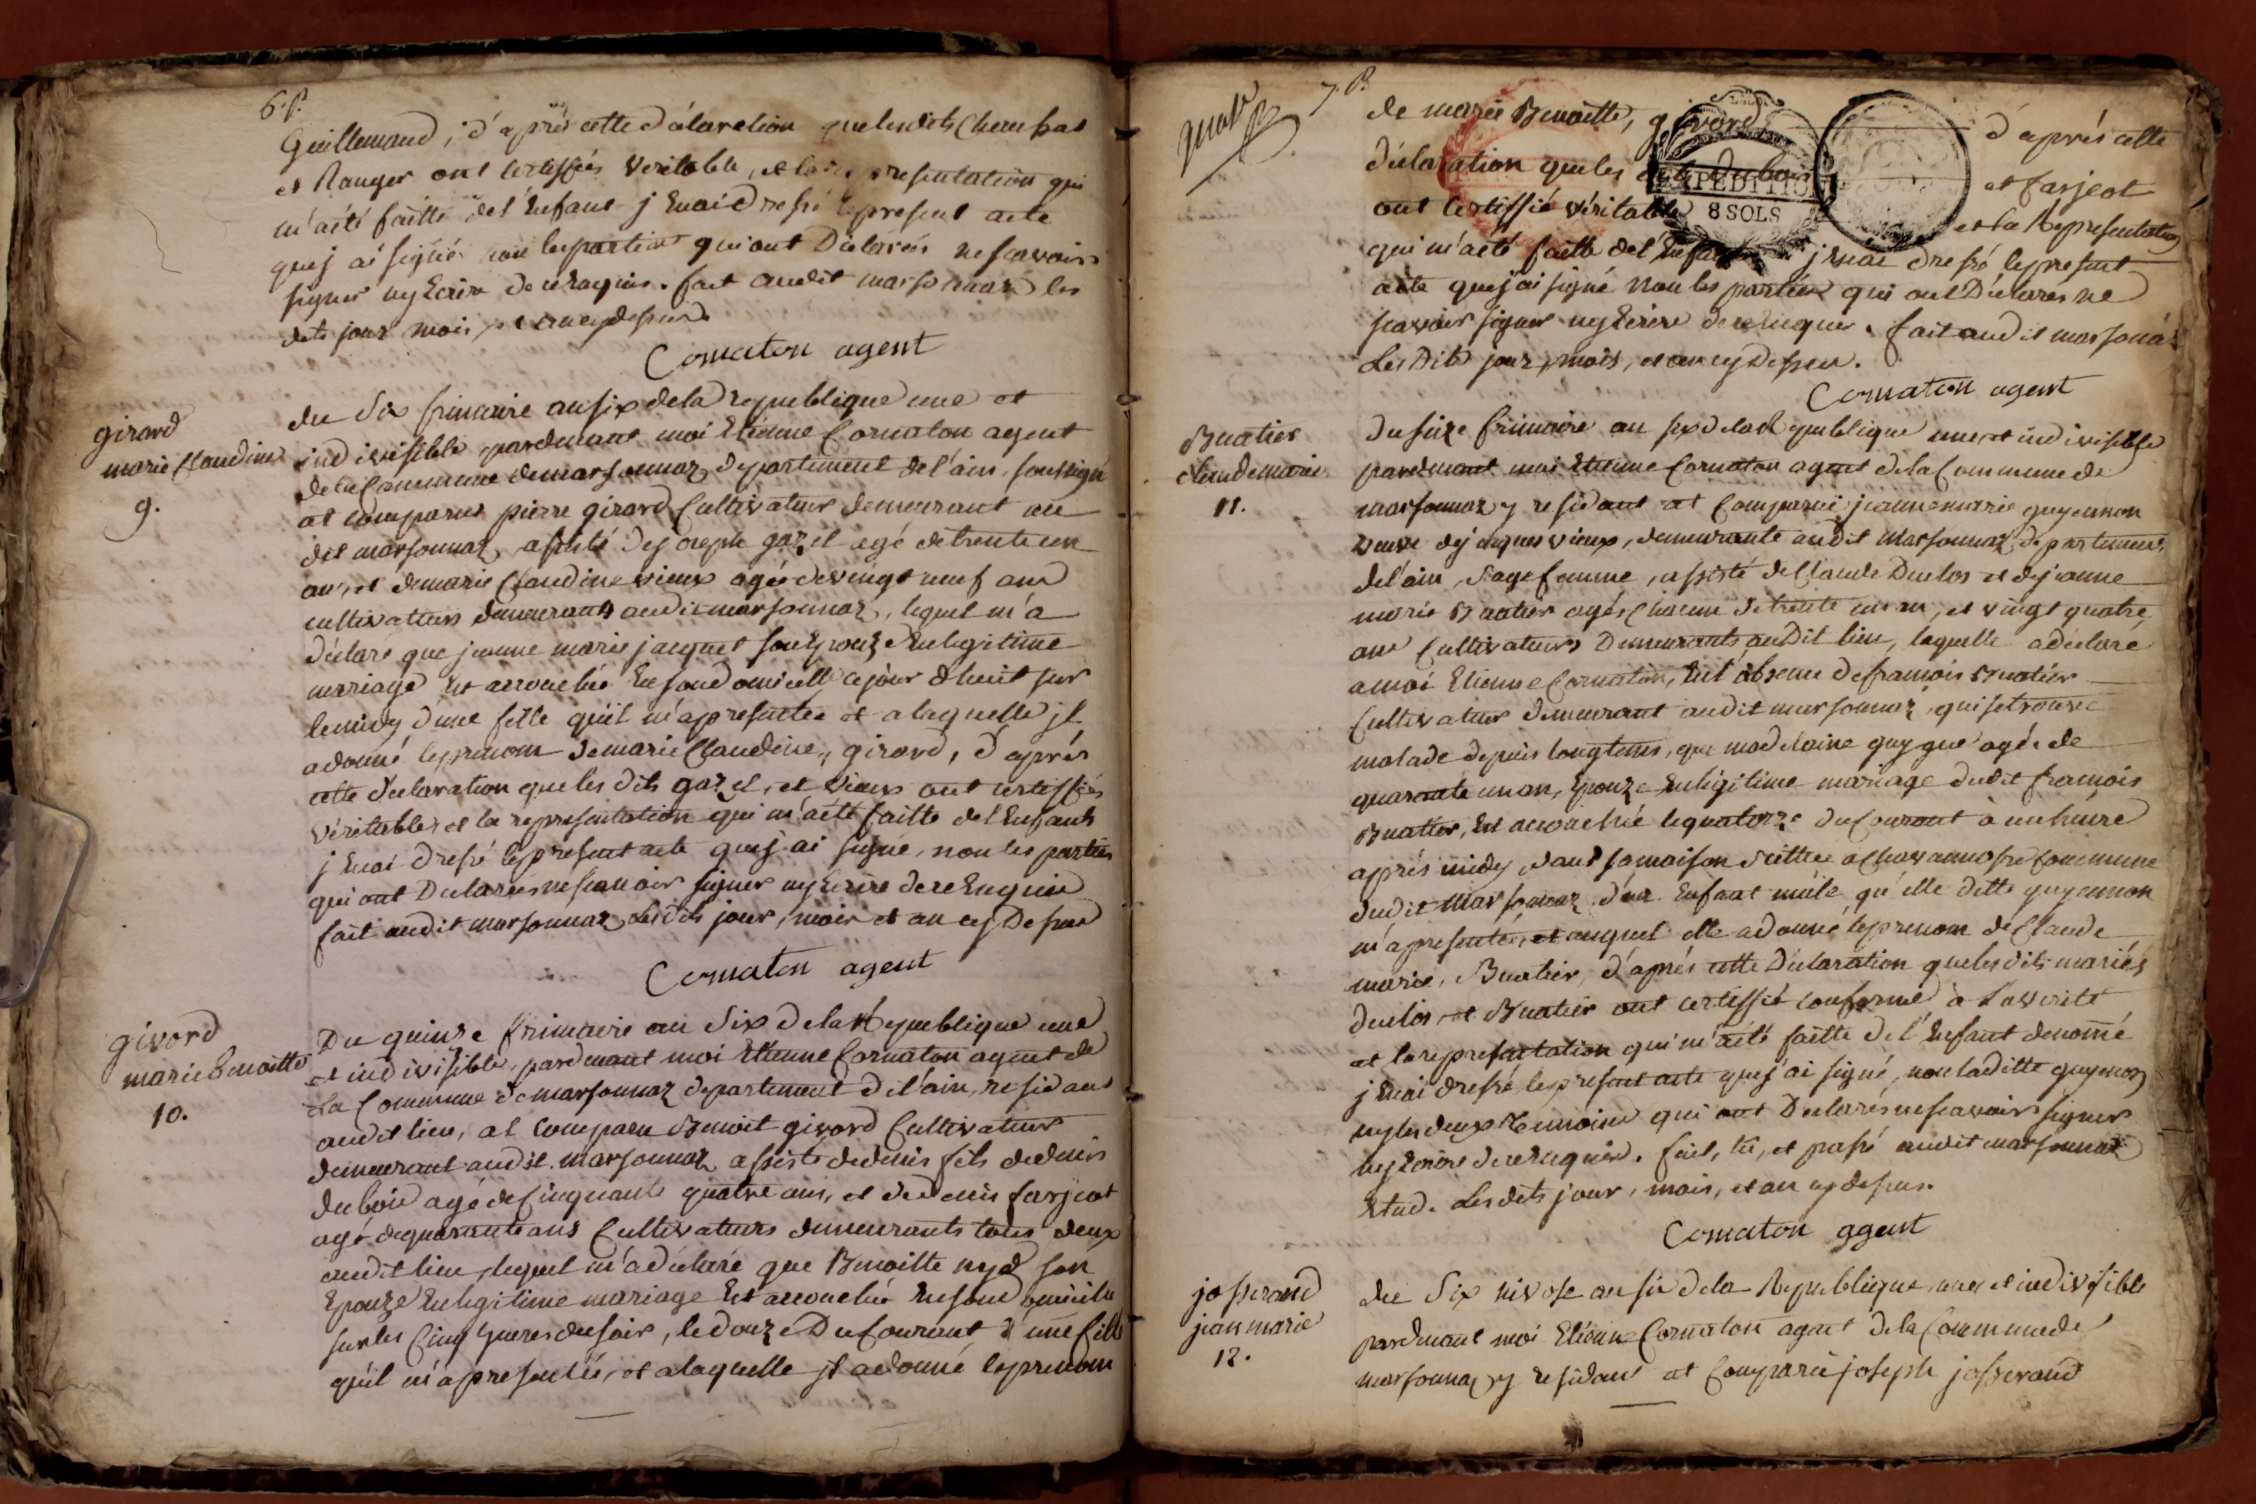 6. p.
Guillemaud, d'aprés cette déclaration que lesdits Chembat
et Nauger ont certiffiés veritable, et la représentation qui
m'aété faitte del'Enfant j'Enai Dressé leprésent acte
quej ai signés non lesparties quiont Déclarés nesçavoirs
signer nyEcrire de cerequis. fait audit marsonnaz les
dits jour mois et an cydessus
Cornaton agent
girard
marie Claudine
9.
du Six frimaire ansix dela republique une et
indivisible, pardevant moi Etienne Cornaton agent
dela Commune demarsonnaz departement del'ain, soussigné
at comparus pierre girard Cultivateur demeurant au
dit marsonnaz, assisté dejoseph gazel agé detrente un
an, et demarie Claudine vieux agée devingt neuf ans
cultivateurs demeurants audit marsonnaz, lequel m'a
Déclaré que jeanne marie jacquet sonEpouze Enlegitime
mariage Est accouchée En sondomicille cejour d'huit sur
lemidy d'une fille qu'il m'apresentée et alaquelle jl
adonné leprenom demarie Claudine, girard, d'aprés
cette déclaration queles dits gazel, et vieux ont certiffiés
véritables et la representation qui m'aété faitte del'Enfant
j'Enai dressé leprésent acte quej-ai signé, non les parties
qui ont Déclarés nesçavoir signer ny Ecrire dece Enquis
fait audit marsonnaz lesdits jour, mois et an cy Dessus
Cornaton agent
givord
marie benoitte
10.
Du quinze frimaire an Six dela République une
et indivisible, pardevant moi Etienne Cornaton agent de
La Commune demarsonnaz departement del'ain, residant
audit lieu, at comparu Benoit givord Cultivateur
demeurant audit marsonnaz assisté dedenis fils dedenis
dubois agé de Cinquante quatre ans, et dedenis farjeot
agé dequarante ans Cultivateurs demeurants tous deux
audit lieu, lequel m'adéclaré que Benoitte nyd son
Epouze Enlegitime mariage Est accouchée Ensondomicile
surles Cinq heures dusoir, le douze Du Courant d'une fille
qu'il m'apresentée, et alaquelle jl adonné, leprenom
7. p.
de marie Benoitte, givord d'aprés cette
déclaration queles dits Dubois et farjeot
EXPEDITION
8 SOLS
ont certiffié véritable et la Representation
qui m'aété faitte del'Enfant j'Enai dressé leprésent
acte quej'ai signé Non les parties qui ont Déclarés ne
sçavoir signer nyEcrire decerequis. fait audit marsonnaz
Les Dits jour, mois, et an cy Dessus.
Cornaton agent
Buatier
claudemarie
11.
Duseize frimaire an six dela Republique une et indivisible
pardevant moi Etienne Cornaton agent dela Commune de
marsonnaz y residant at Comparue jeannemarie guyennon
veuve dejacques vieux, demeurante audit Marsonnaz, departement
del'ain, Sagefemme, assisté deClaude Duclos et dejeanne
marie Buatier agés Chacun detrente un an, et vingt quatre
ans Cultivateurs Demeurants audit lieu, laquelle adéclaré
amoi Etienne Cornaton, Enl'absence defrançois Buatier
Cultivateur demeurant audit marsonnaz, qui setrouve
malade depuis longtems, que madelaine guygue agée de
quarante unan, Epouze Enlégitime mariage dudit françois
Buatier, Est accouchée lequatorze DuCourant à une heure
aprés midy, dans samaison sittuée a Chavannosse Commune
dudit Marsonnaz d'un Enfant mâle qu'elle ditte guyennon
m'apresentée, et auquel elle adonné leprenom de Claude
marie, Buatier, d'aprés cette Déclaration quelesdits mariés
duclos, et Buatier ont certiffié conforme à Laverité
et la representation qui m'aété faitte del'Enfant denomé
j'Enai dressé leprésent acte quej'ai signé, non laditte guyennon
nyles deux temoins qui ont Déclarés nesçavoir signer
nyEcrire decerequis. fait, lu, et passé audit marsonnaz
Etud. Lesdits jour, mois, et an cydessus.
Cornaton agent
josserand
jean marie
12.
du Six nivose ansix dela Republique une et indivisible
pardevant moi Etienne Cornaton agent dela Commune de
marsonnaz y residant at Comparu joseph josserand